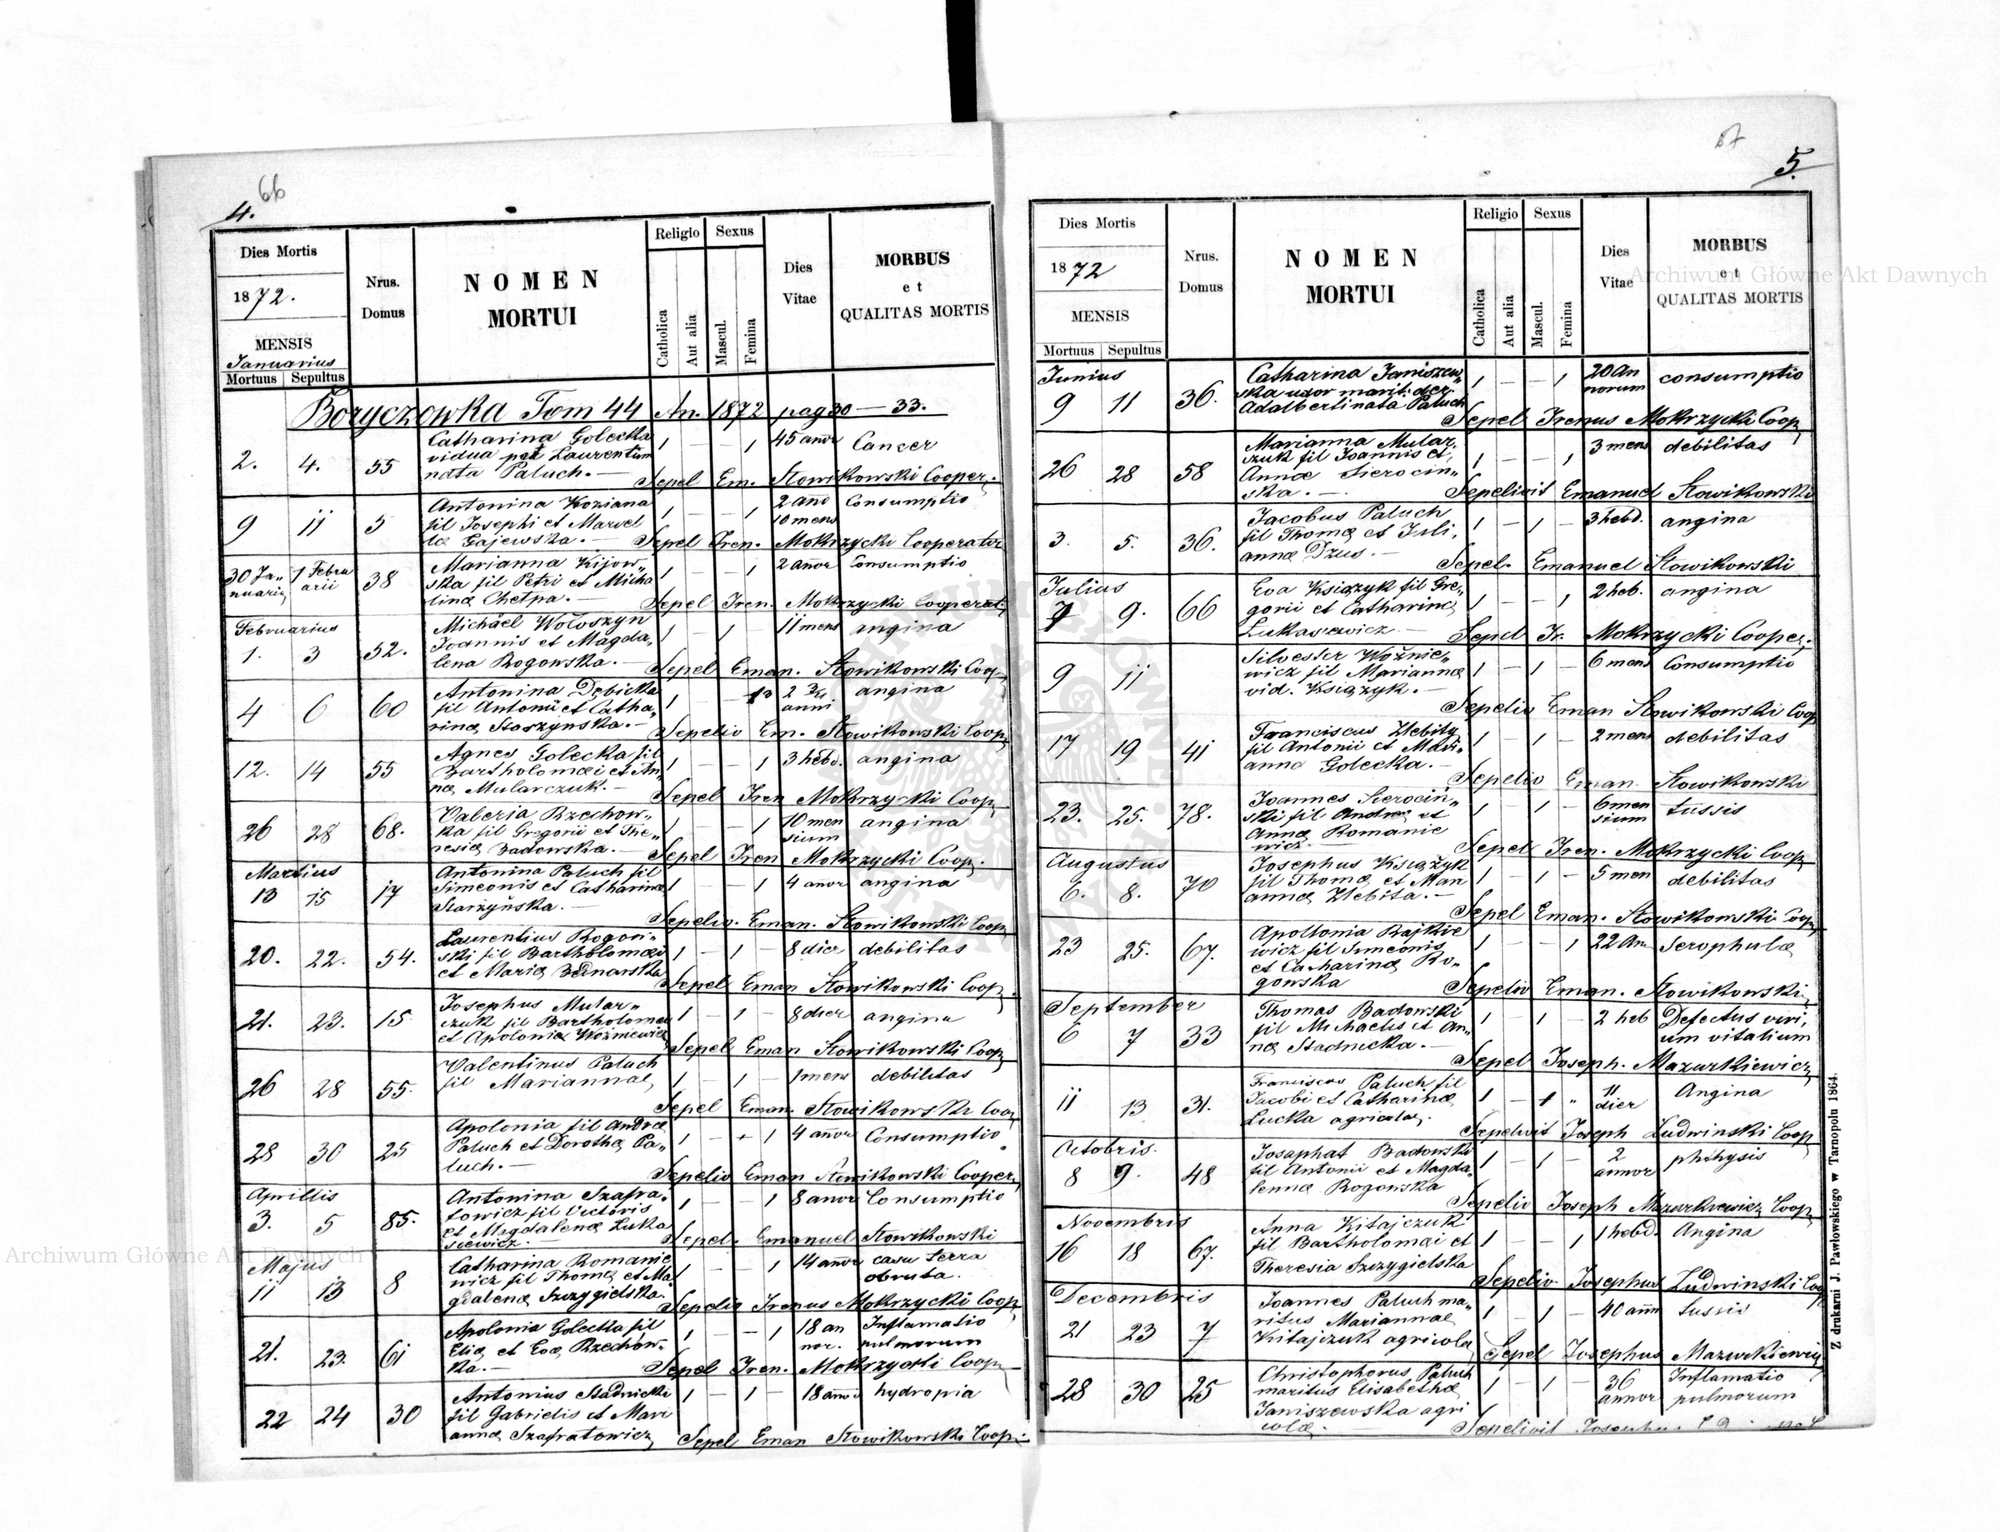 66
4.
Dies Mortis
1872.
MENSIS
Januarius
Mortuus Sepultus
Nrus. Domus
NOMEN
MORTUI
Religio
Catholica
Aut alia
Sexus
Mascul.
Femina
Dies
Vitae
MORBUS
et
QUALITAS MORTIS
Boryczowka Tom 44 An. 1872 pag 30 — 33.
2. 4. 55 Catharina Golecka 1 — — 1 45 anor Cancer
vidua post Laurentium
nata Paluch. —
Sepel Em. Słowikowski Cooper.
9 11 5 Antonina Koziana 1 — — 1 2 ano Consumptio
fil Josephi et Marcel 10 mens
læ Gajewska. —
Sepel Iren. Mokrzycki Cooperator
30 Ja- 1 Febru 38 Marianna Kijow- 1 — — 1 2 anor Consumptio
nuarii arii ska fil Petri et Micha
linæ Chełpa. —
Sepel Iren. Mokrzycki Cooperat.
Februarius
1. 3 52. Michael Wołoszyn 1 — 1 — 11 mens angina
Joannis et Magda-
lena Rogowska. —
Sepel Eman. Słowikowski Coop
4 6 60 Antonina Dębicka 1 — angina
fil Antonii et Catha- anni
rinæ Staszynska. —
Sepelio Em. Słowikowski Coop
12. 14 55 Agnes Golecka fil 1 — — 1 3 hebd. angina
Bartholomæi et An-
næ Mularczuk. —
Sepel Iren Mokrzycki Coop
26 28 68. Valeria Rzechow- 1 — — 1 10 men angina
ska fil Gregorii et The- sium
resiæ Badowska. —
Sepel Iren Mokrzycki Coop.
Martius
13 15 17 Antonina Paluch fil 1 — — 1 4 anor angina
Simeonis et Catharinæ
Starzyńska. —
Sepelio. Eman. Słowikowski Coop
20. 22. 54. Laurentius Rogow- 1 — 1 — 8 dier debilitas
ski fil Bartholomæi
et Mariæ Bednarska
Sepel Eman Słowikowski Coop.
21. 23. 15 Josephus Mular- 1 — 1 — 8 dier angina
czuk fil Bartholomæi
et Apoloniæ Wozniewicz
Sepel Eman Słowikowski Coop
26 28 55. Valentinus Paluch 1 — 1 — 1 mens debilitas
fil Mariannæ
Sepel Eman. Słowikowski Coop
28 30 25 Apolonia fil Andreæ 1 — 1 4 anor Consumptio
Paluch et Dorotheæ Pa-
luch. —
Sepelio Eman Słowikowski Cooper.
Aprillis
3. 5 85. Antonina Szafra- 1 — — 1 8 anor Consumptio
towicz fil Victoris
et Magdalenæ Łuka
siewicz. —
Sepel. Emanuel Słowikowski
Majus
11 13 8 Catharina Romanie 1 — — 1 14 anor casu terra
wicz fil Thomæ et Ma- obruta.
gdalenæ Szczygielska.
Sepelio Irenus Mokrzycki Coop
21. 23. 61 Apolonia Golecka fil 1 — — 1 18 an Inflamatio
Eliæ et Evæ Rzechow- nor. pulmorum
ska. —
Sepel Iren. Mokrzycki Coop
22 24 30 Antonius Stadnicki 1 — 1 — 18 anor hydropia
fil Gabrielis et Mari
annæ Szafratowicz
Sepel Eman Słowikowski Coop.
5.
Dies Mortis
1872
MENSIS
Mortuus Sepultus
Nrus. Domus
NOMEN
MORTUI
Religio
Catholica
Aut alia
Sexus
Mascul.
Femina
Dies
Vitae
MORBUS
et
QUALITAS MORTIS
Junius
9 11 36. Catharina Janiszew- 1 — — 1 20 an consumptio
ska uxor marit: der norum
Adalberti nata Paluch
Sepel Irenus Mokrzycki Coop
26 28 58 Marianna Mular- 1 — — 1 3 mens debilitas
czuk fil Joannis et
Annæ Sierocin-
ska. —
Sepelivit Emanuel Słowikowski
3. 5. 36. Jacobus Paluch 1 — 1 — 3 hebd. angina
fil Thomæ et Juli-
annæ Dzus. —
Sepel. Emanuel Słowikowski
Julius
7 9. 66 Eva Książyk fil Gre- 1 — — 1 2 heb. angina
gorii et Catharinæ
Łukasiewicz —
Sepel Ir. Mokrzycki Cooper.
9 11 Silvester Woźnie- 1 — 1 — 6 mens Consumptio
wicz fil Mariannæ
vid. Książyk. —
Sepelio Eman Słowikowski Coop
17 19 41 Franciscus Hebity 1 — 1 — 2 mens debilitas
fil Antonii et Mari-
anna Golecka. —
Sepelio Eman. Słowikowski
23. 25. 78. Joannes Sierociń- 1 1 — 6 men tussis
ski fil Andreæ et sium
Annæ Romanie
wicz. —
Sepel Iren. Mokrzycki Coop
Augustus
6. 8. 70 Josephus Książyk 1 — 1 — 5 men debilitas
fil Thomæ et Mari
annæ Hebita. —
Sepel Eman. Słowikowski Coop
23 25. 67. Apollonia Rajkie 1 — — 1 22 An. Scrophulæ
wicz fil Simeonis
et Catharinæ Ro-
gowska
Sepelio Eman. Słowikowski
September
6 7 33 Thomas Badowski 1 — 1 — 2 heb Defectus viri-
fil Michaelis et An- um vitalium
næ Stadnicka. —
Sepel Joseph. Mazurkiewicz
11 13 31. Franciscus Paluch fil 1 — 1 " 11 Angina
Jacobi et Catharinæ dier
Lucka agricolæ.
Sepelivit Joseph Ludwinski Coop
Octobris.
8 9. 48 Josaphat Badowski 1 — 1 — 2 phthysis
fil Antonii et Magda- annor
lennæ Rogowska
Sepelio Joseph Mazurkiewicz Coop
Novembris
16 18 67. Anna Kitajczuk 1 — — 1 1 hebd. Angina
fil Bartholomæi et
Theresia Szczygielska
Sepelio Josephus Ludwinski Coop
Decembris
21 23 7 Joannes Paluch ma- 1 — 1 — 40 ann tussis
ritus Mariannæ
Kitajczuk agricola
Sepel Josephus Mazurkiewicz
28 30 25 Christophorus Paluch 1 — 1 — 36 Inflamatio
maritus Elisabethæ annor pulmorum
Janiszewska agri
colæ. —
Sepelivit Josephus
Z drukarni J. Pawłowskiego w Tarnopolu 1864.
Archiwum Główne Akt Dawnych
Archiwum Główne Akt Dawnych